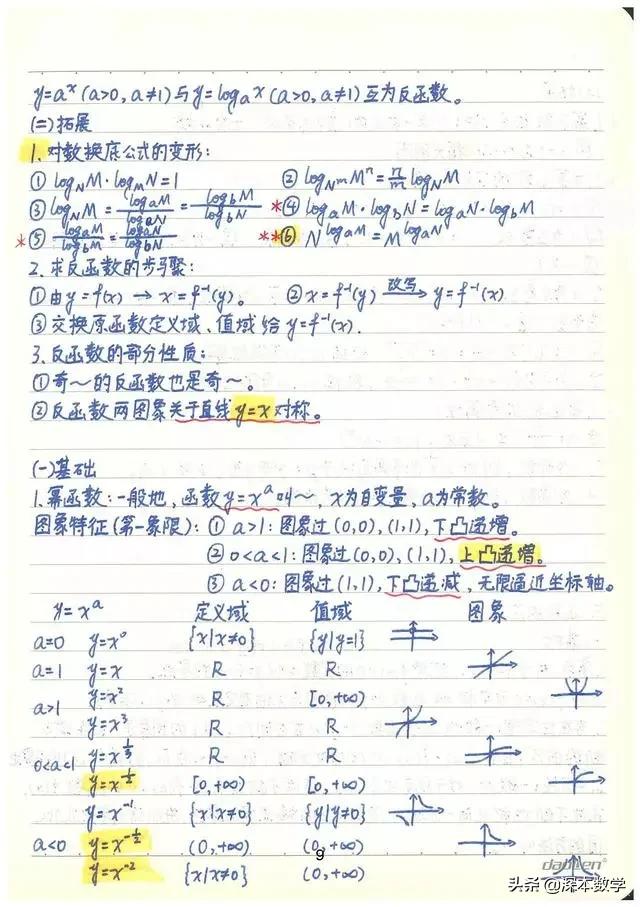 y=aˣ(a>0,a≠1)与y=logₐx(a>0,a≠1)互为反函数。
(二)拓展
1.对数换底公式的变形:
① log_N M·log_M N=1 ② log_{N^m} M^n = n/m log_N M
③ log_N M = log_a M/log_a N = log_b M/log_b N *④ log_a M·log_b N=log_a N·log_b M
*⑤ log_a M/log_b M = log_a N/log_b N **⑥ N^{log_a M}=M^{log_a N}
2.求反函数的步骤:
①由y=f(x)→x=f⁻¹(y)。 ②x=f⁻¹(y) 改写→ y=f⁻¹(x)
③交换原函数定义域、值域给y=f⁻¹(x).
3.反函数的部分性质:
①奇~的反函数也是奇~。
②反函数两图象关于直线y=x对称。
(一)基础
1.幂函数:一般地,函数y=xᵃ叫~,x为自变量,a为常数。
图象特征(第一象限):① a>1:图象过(0,0),(1,1),下凸递增。
② 0<a<1:图象过(0,0),(1,1),上凸递增。
③ a<0:图象过(1,1),下凸递减,无限逼近坐标轴。
y=xᵃ 定义域 值域 图象
a=0 y=x⁰ {x|x≠0} {y|y=1}
a=1 y=x R R
a>1 y=x² R [0,+∞)
y=x³ R R
0<a<1 y=x^{1/3} R R
y=x^{1/2} [0,+∞) [0,+∞)
y=x⁻¹ {x|x≠0} {y|y≠0}
a<0 y=x^{-1/2} (0,+∞) (0,+∞)
y=x⁻² {x|x≠0} (0,+∞)
9
头条@深本数学